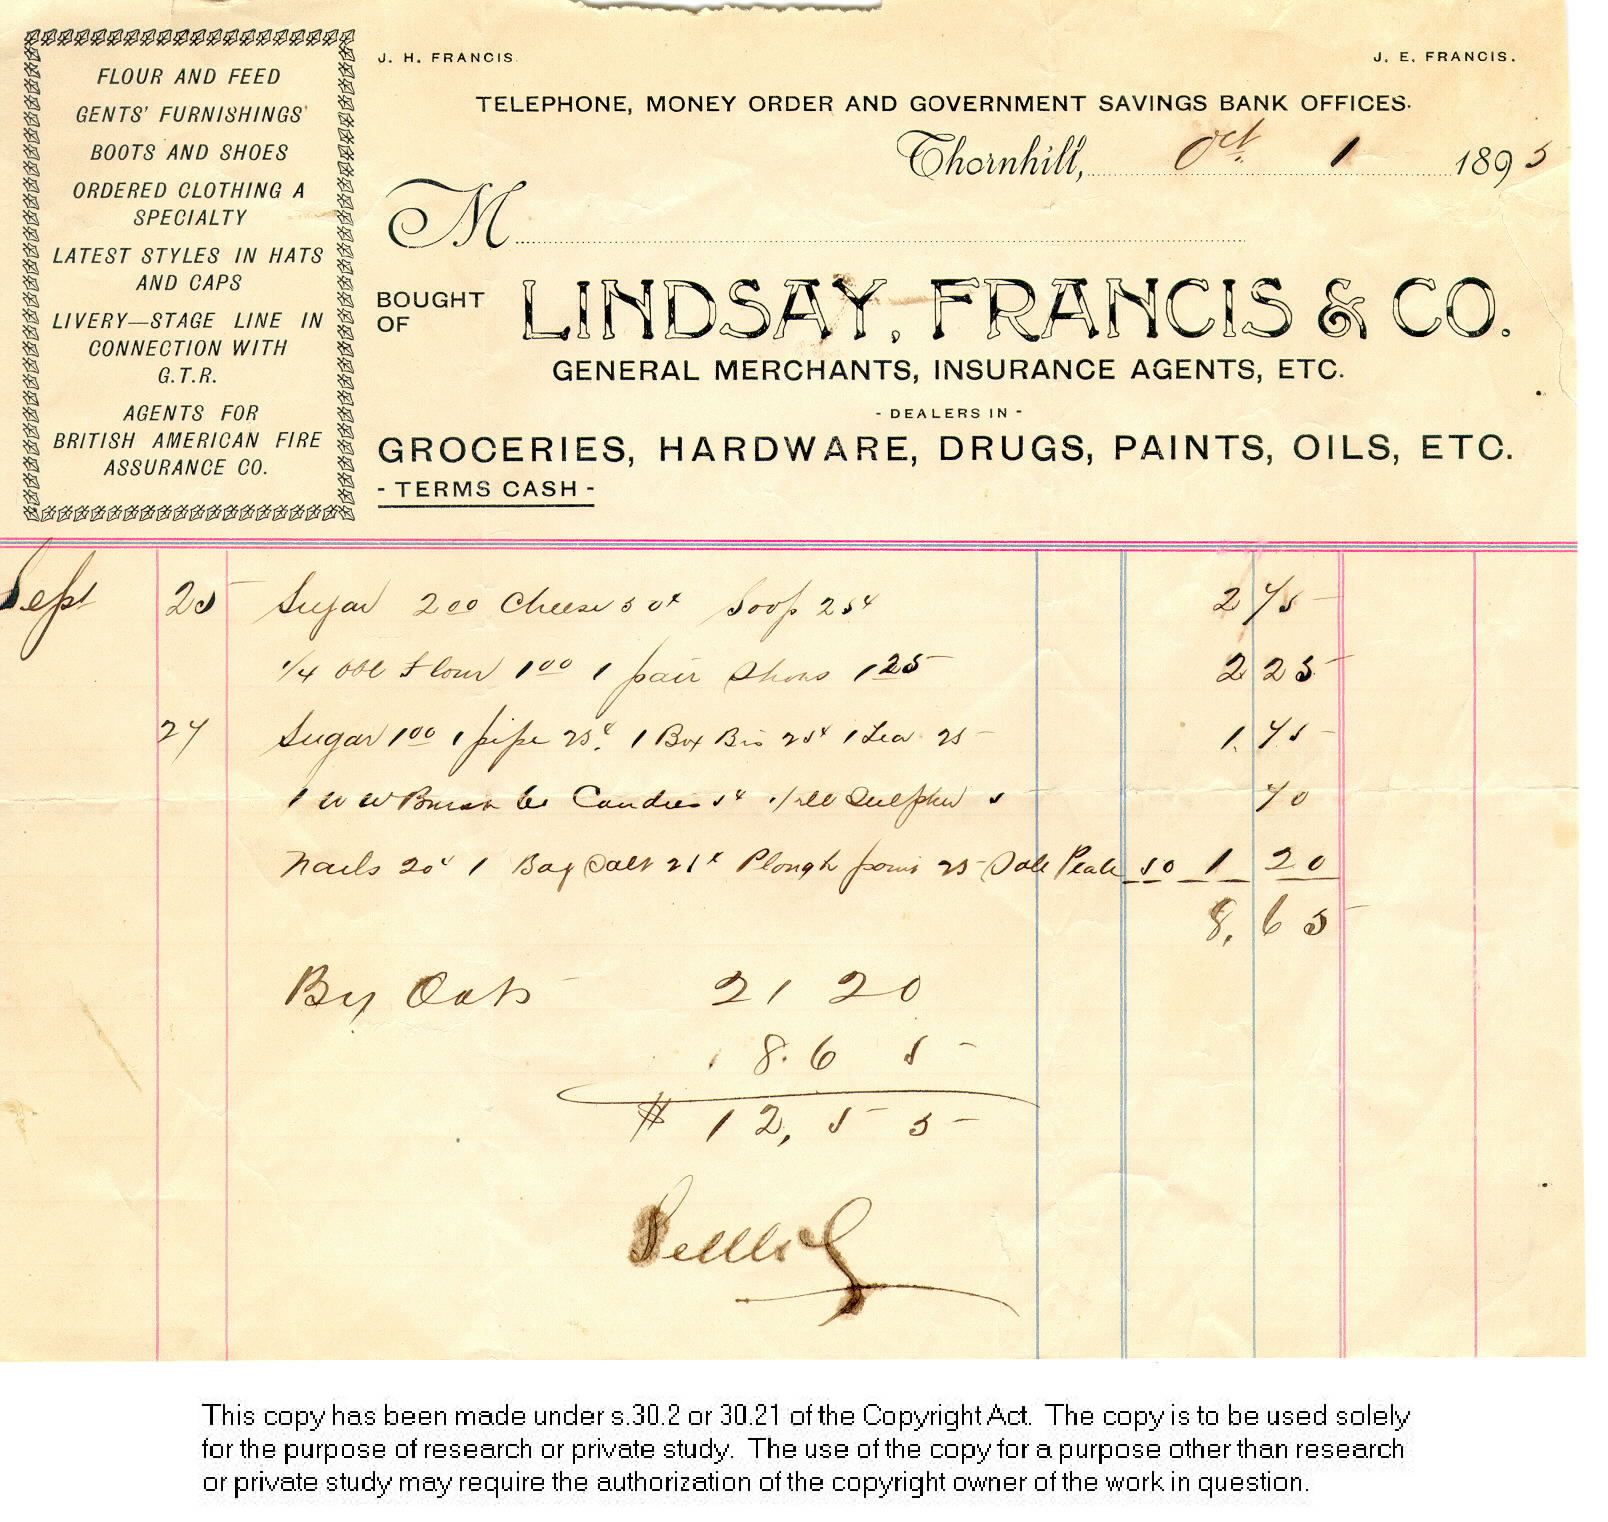 FLOUR AND FEED
GENTS' FURNISHINGS
BOOTS AND SHOES
ORDERED CLOTHING A
SPECIALTY
LATEST STYLES IN HATS
AND CAPS
LIVERY—STAGE LINE IN
CONNECTION WITH
G.T.R.
AGENTS FOR
BRITISH AMERICAN FIRE
ASSURANCE CO.
J. H. FRANCIS.
J. E. FRANCIS.
TELEPHONE, MONEY ORDER AND GOVERNMENT SAVINGS BANK OFFICES.
Thornhill, Oct. 1 1895
M
BOUGHT OF
LINDSAY, FRANCIS & CO.
GENERAL MERCHANTS, INSURANCE AGENTS, ETC.
- DEALERS IN -
GROCERIES, HARDWARE, DRUGS, PAINTS, OILS, ETC.
- TERMS CASH -
Sept 25 Sugar 200 Cheese 50¢ Soap 25¢ 2 75
1/4 bbl Flour 1 00 1 pair Shoes 1 25 2 25
27 Sugar 1 00 1 pipe 25¢ 1 Box 25¢ 1 Tea 25 1. 75
1 W W Candies 5¢ Sulphur 5 70
Nails 20¢ 1 Bag Salt 25¢ Plough 25 Sole 50 1 20
8.65
By Oats 21 20
8.65
$ 12,55
Settled
This copy has been made under s.30.2 or 30.21 of the Copyright Act. The copy is to be used solely
for the purpose of research or private study. The use of the copy for a purpose other than research
or private study may require the authorization of the copyright owner of the work in question.